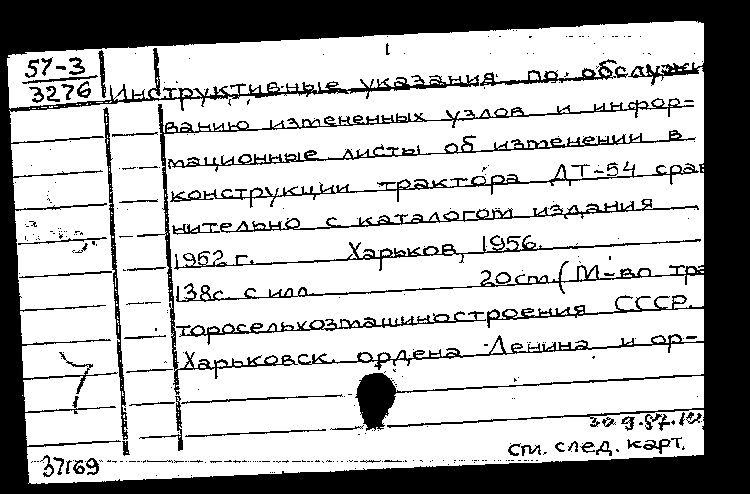 1
57-3
3276
Инструктивные указания по обслужи
ванию измененных узлов и инфор=
мационные листы об изменении в
конструкции трактора ДТ-54 срав
нительно с каталогом издания
1952 г. Харьков, 1956.
138с. с илл. 20см. (М-во тра
торосельхозмашиностроения СССР.
Харьковск. ордена Ленина и ор-
7
См. след. карт.
37169